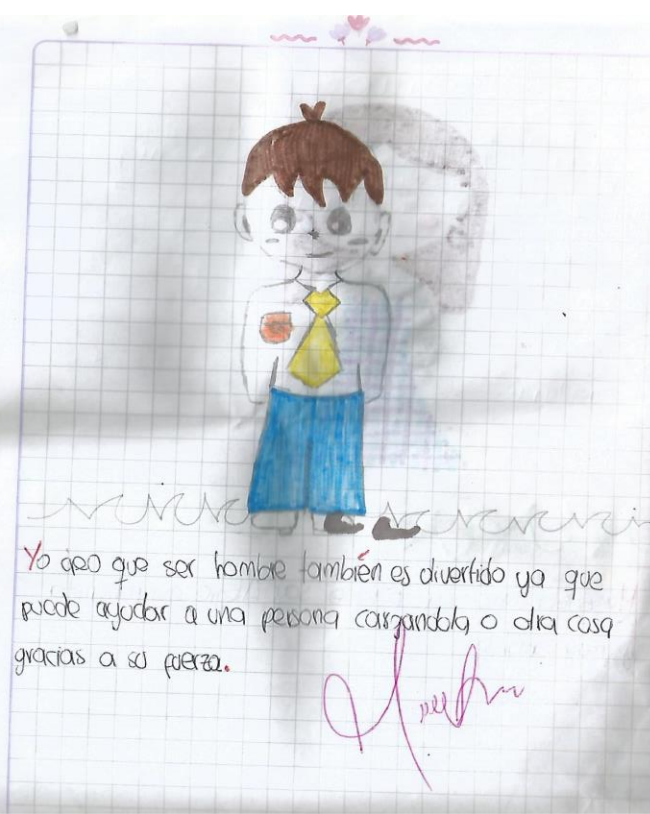 Yo creo que ser hombre también es divertido ya que
puede ayudar a una persona cargandola o otra cosa
gracias a su fuerza.